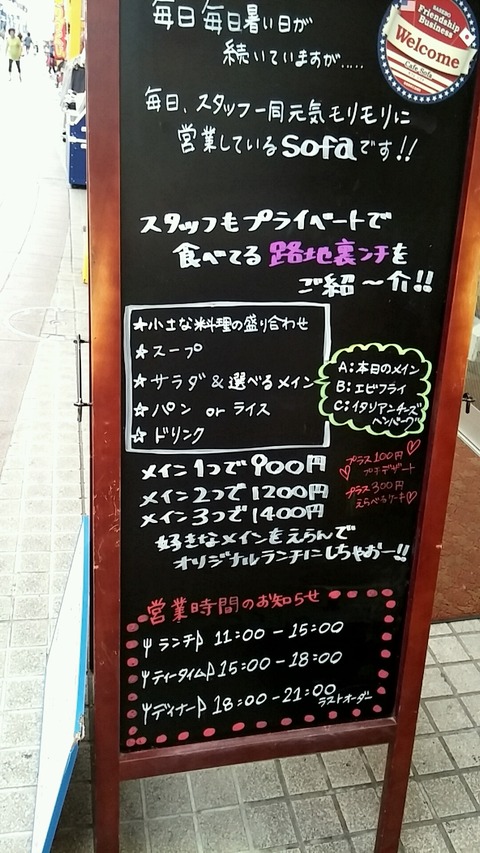 毎日毎日暑い日が
続いていますが.....
SASEBO
Friendship
Business
Welcome
Cafe Sofa
毎日、スタッフ一同元気モリモリに
営業しているsofaです!!
スタッフもプライベートで
食べてる 路地裏ンチを
ご紹〜介!!
★小さな料理の盛り合わせ
★スープ
★サラダ&選べるメイン
★パン or ライス
★ドリンク
A:本日のメイン
B:エビフライ
C:イタリアンチーズ
ハンバーグ
メイン1つで900円
メイン2つで1200円
メイン3つで1400円
プラス100円
プチデザート
プラス300円
えらべるケーキ
好きなメインをえらんで
オリジナルランチにしちゃおー!!
営業時間のお知らせ
ランチ 11:00-15:00
ティータイム 15:00-18:00
ディナー 18:00-21:00
ラストオーダー